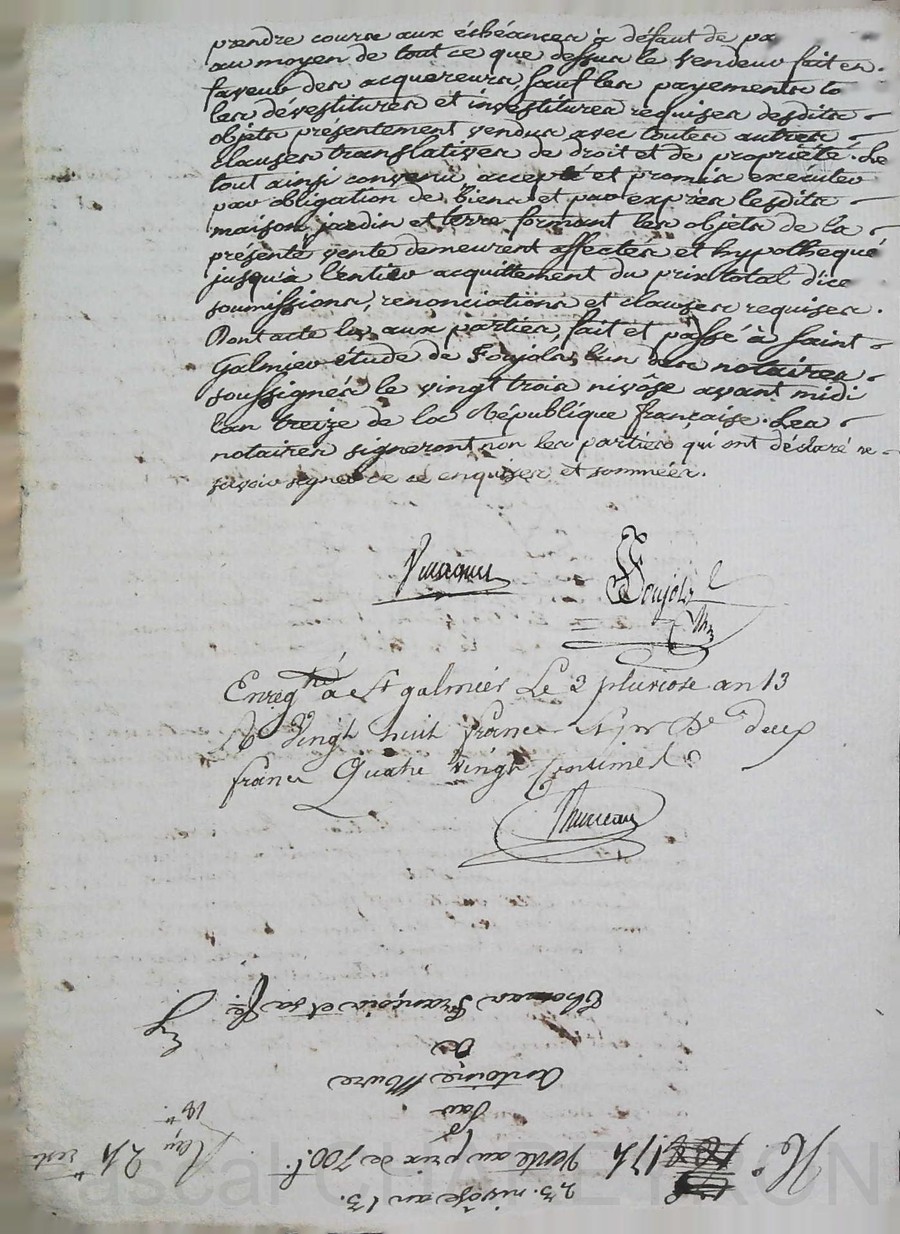 prendre course aux échéances à défaut de pa
au moyen de tout ce que dessus le vendeur fait en
faveur des acquereurs, sauf les payements to
les dévestitures et investitures requises desdits
objets présentement vendus avec toutes autres
clauses translatives de droit et de propriété. Le
tout ainsi convenu accepté et promis executer
par obligation de biens et par exprès lesdits
maison jardin et terre formant les objets de la
présente vente demeurent affectés et hypothequé
jusqu'à l'entier acquittement du prix total d'ice
soumissions, renonciations et clauses requises.
Dont acte lu aux parties, fait et passé à Saint
Galmier étude de Foujols, l'un des notaires
soussignés le vingt trois nivôse avant midi
l'an treize de la République française. Les
notaires signeront, non les parties qui ont déclaré ne
savoir signer de ce enquises et sommées.
Foujols
Enreg.tré à St galmier Le 2 pluviose an 13
Vingt huit francs deux
francs Quatre vingt Centimes
23. nivôse an 13.
N.° 174 Vente au prix de 700f.
Par
Antoine Mure
De
Thomas François et sa fe
Pascal CHAPEYRON